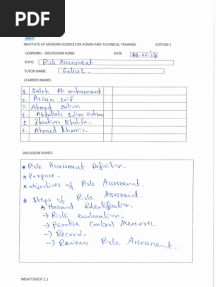 PDF
INSTITUTE OF MODERN SCIENCE FOR ADMIN AND TECHNICAL TRAINING EDITION 1
LEARNING - DISCUSSION FORM DATE
TOPIC Risk Assessment
TUTOR NAME
LEARNER NAMES
1. Salah Al
2. Azzan Saif
3. Ahmed Salim
4. Abdallah Salim
5. Khalfan
6. Ahmed Khamis.
DISCUSSION POINTS
* Risk Assessment Definition.
* Purpose.
* objectives of Risk Assessment.
* Steps of Risk Assessment.
* Hazard Identification
-> Risk evaluation
-> Control Measures
-> Record.
-> Review Risk Assessment.